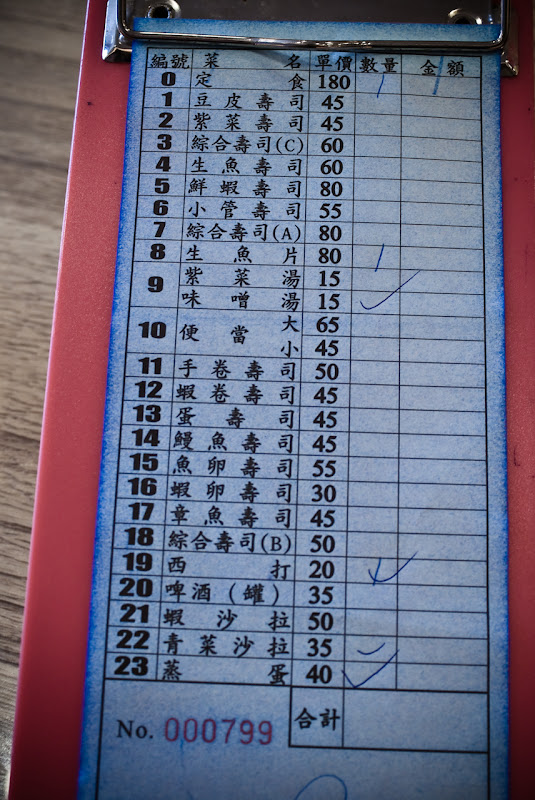 編號 菜名 單價 數量 金額
0 定食 180 1
1 豆皮壽司 45
2 紫菜壽司 45
3 綜合壽司(C) 60
4 生魚壽司 60
5 鮮蝦壽司 80
6 小管壽司 55
7 綜合壽司(A) 80
8 生魚片 80 1
9 紫菜湯 15
味噌湯 15
10 便當 大 65
小 45
11 手卷壽司 50
12 蝦卷壽司 45
13 蛋壽司 45
14 鰻魚壽司 45
15 魚卵壽司 55
16 蝦卵壽司 30
17 章魚壽司 45
18 綜合壽司(B) 50
19 西打 20
20 啤酒(罐) 35
21 蝦沙拉 50
22 青菜沙拉 35
23 蒸蛋 40
合計
No. 000799